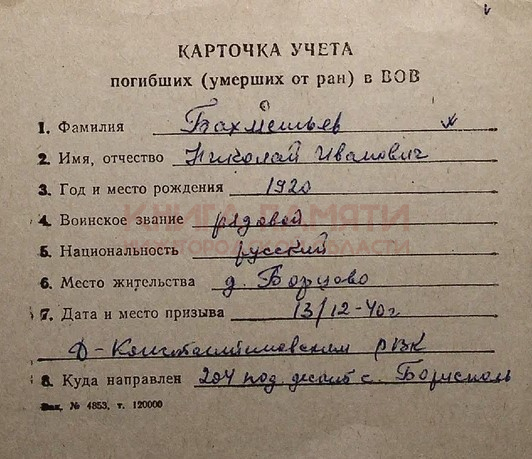 КАРТОЧКА УЧЕТА
погибших (умерших от ран) в ВОВ
1. Фамилия Бахметьев
2. Имя, отчество Николай Иванович
3. Год и место рождения 1920
4. Воинское звание рядовой
КНИГА ПАМЯТИ
НИЖЕГОРОДСКОЙ ОБЛАСТИ
5. Национальность русский
6. Место жительства д. Борцово
7. Дата и место призыва 13/12-40г
Д-Константиновским РВК
8. Куда направлен 204 под десант с. Борисполь
Зак. № 4853, т. 120000